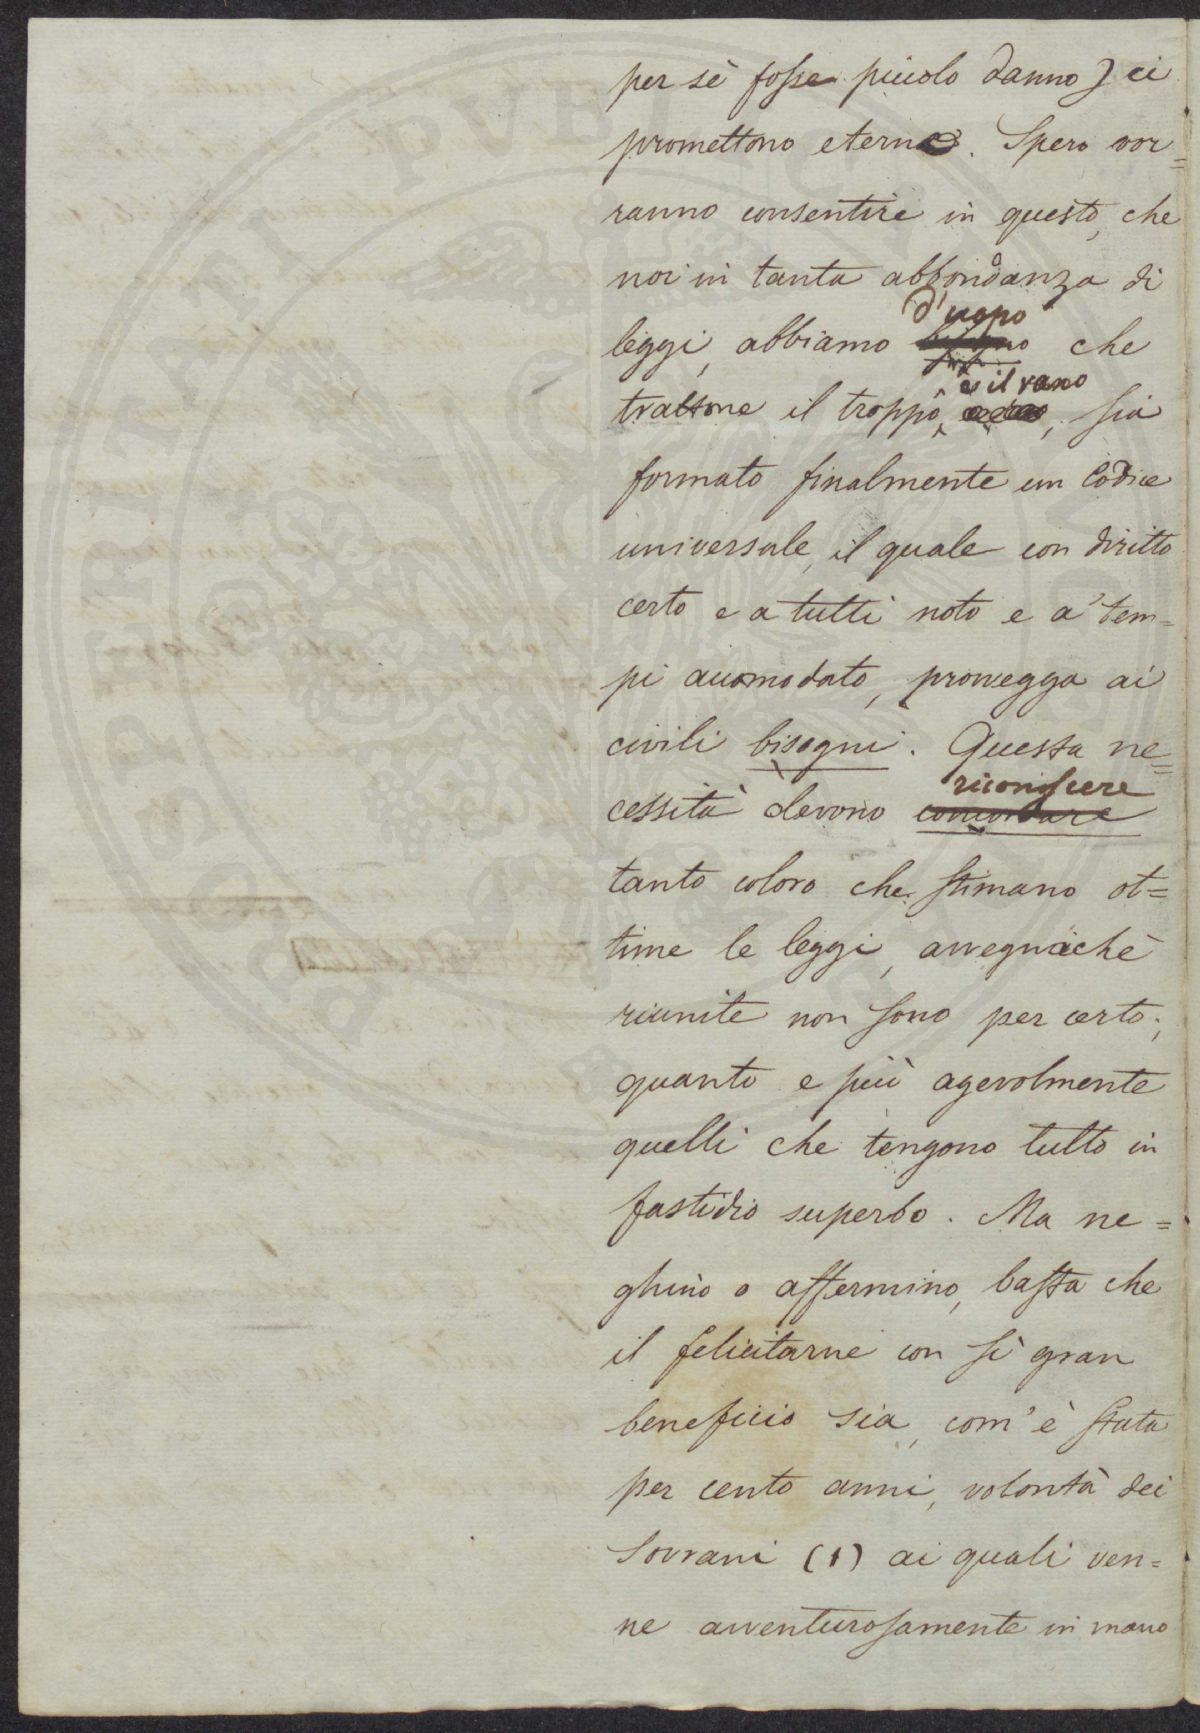 per sè fosse piccolo danno) ci
promettono eterne. Spero vor=
ranno consentire in questo, che
noi in tanta abbondanza di
d'uopo
leggi, abbiamo che
e il vano
trattone il troppo, sia
formato finalmente un Codice
universale, il quale con diritto
certo e a tutti noto e a' tem=
pi accomodato, provvegga ai
civili bisogni. Questa ne=
riconoscere
cessità devono concordare
tanto coloro che stimano ot=
time le leggi, avvegnachè
riunite non sono per certo;
quanto e più agevolmente
quelli che tengono tutto in
fastidio superbo. Ma ne=
ghino o affermino, basta che
il felicitarne con sì gran
beneficio sia, com'è stata
per cento anni, volontà dei
Sovrani (1) ai quali ven=
ne avventurosamente in mano